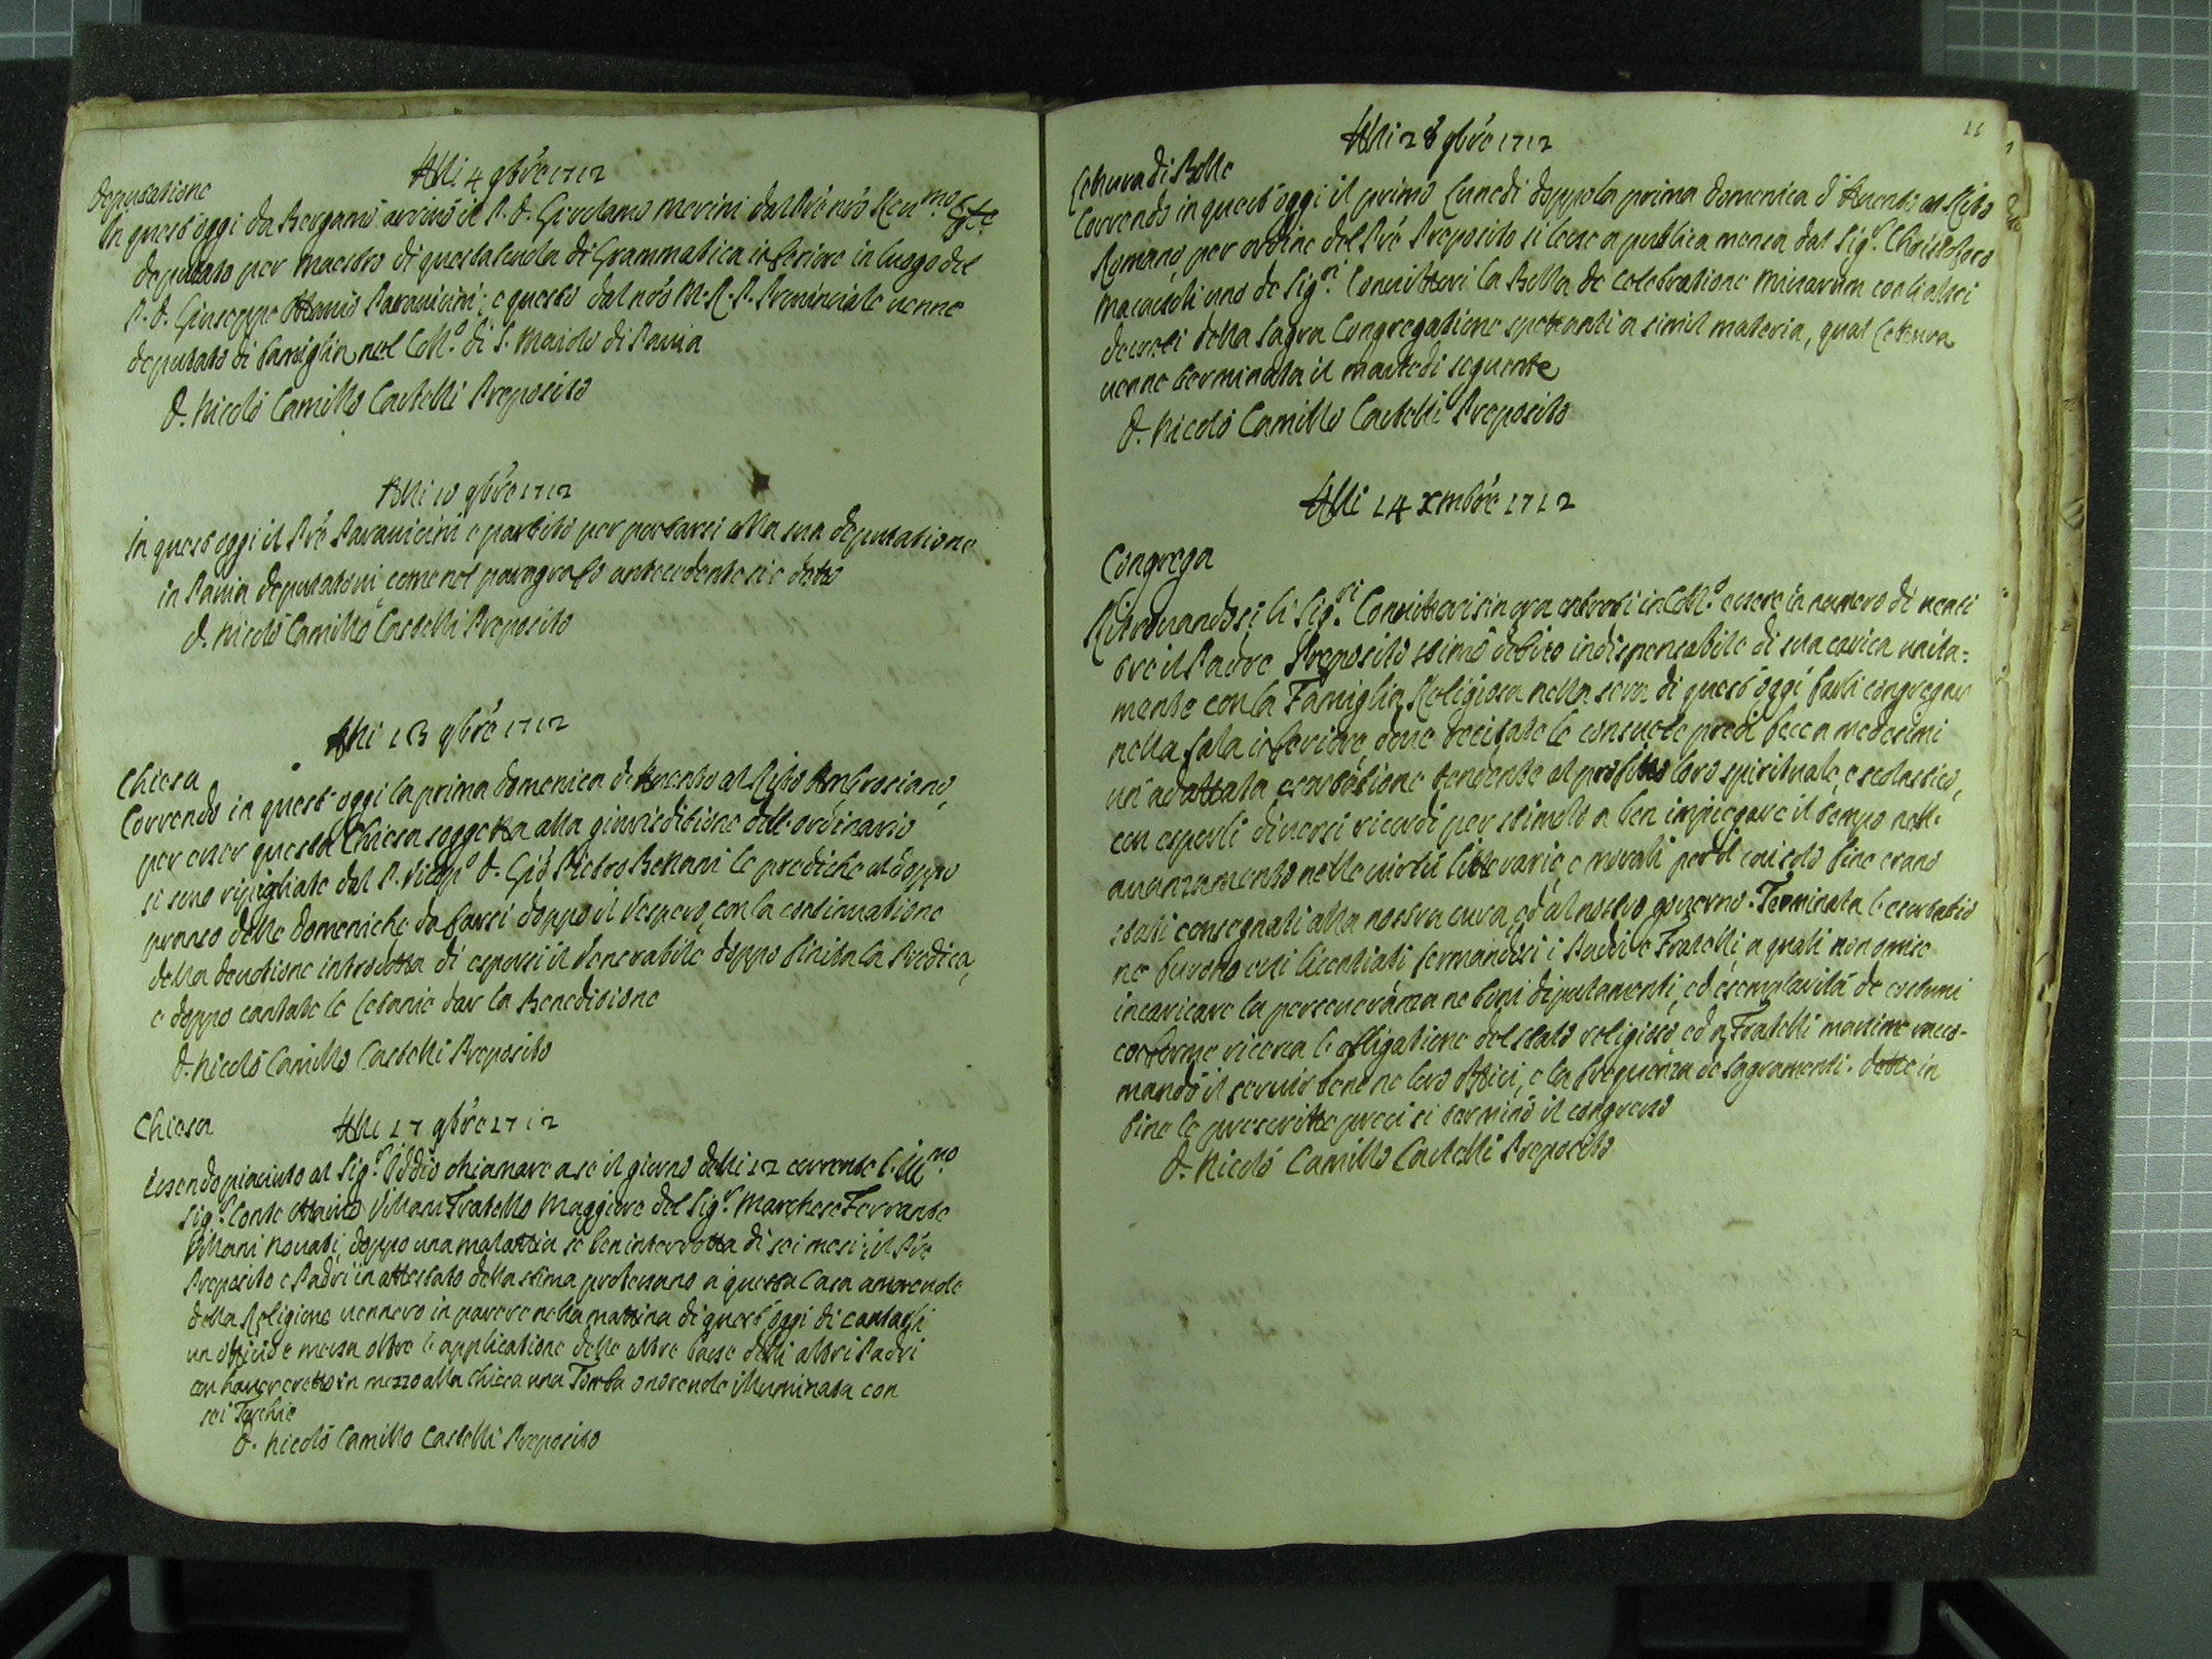 Alli 4 9bre 1712
Deputatione
In quest'oggi da Bergamo arrivò il P. D. Girolamo Merini dal Pre nro Reu.mo Gnle
deputato per maestro di questa scuola di Grammatica inferiore in luogo del
P. D. Giuseppe Ottavio Paravicini; e questo dal nro M. R. P. Provinciale venne
deputato di famiglia nel Coll.o di S. Maiolo di Pavia
D. Nicolò Camillo Castelli Preposito
Alli 10 9bre 1712
In quest'oggi il Pre Paravicini è partito per portarsi alla sua deputatione
in Pavia deputatovi, come nel paragrafo antecedente si è detto
D. Nicolò Camillo Castelli Preposito
Alli 13 9bre 1712
Chiesa
Correndo in quest'oggi la prima domenica d'Avento al Rito Ambrosiano,
per esser questa Chiesa soggetta alla giurisditione dell'ordinario
si sono ripigliate dal P. Vicep.o D. Gio Pietro Bennani le prediche al doppo
pranso delle domeniche da farsi doppo il Vespero, con la continuatione
della devotione introdotta di esporsi il Venerabile doppo finita la Predica,
e doppo cantate le Letanie dar la Beneditione
D. Nicolò Camillo Castelli Preposito
Chiesa
Alli 17 9bre 1712
Essendo piaciuto al Sig.r Iddio chiamare a se il giorno delli 12 corrente l'Ill.mo
Sig.r Conte Ottavio Villani Fratello Maggiore del Sig.r Marchese Ferrante
Villani Novati, doppo una malattia se ben interrotta di sei mesi; il Pre
Preposito e Padri in attestato della stima professano a questa Casa amorevole
della Religione vennero in parere nella mattina di quest'oggi di cantarli
un officio e messa oltre l'applicatione delle altre basse delli altri Padri
con haver eretto in mezzo alla Chiesa una Tomba onorevole illuminata con
sei Torchie
D. Nicolò Camillo Castelli Preposito
11
Alli 28 9bre 1712
Lettura di Bolle
Correndo in quest'oggi il primo Lunedi doppo la prima domenica d'Avento al Rito
Romano, per ordine del Pre Preposito si lesse a publica mensa dal Sig.r Christoforo
uno de Sig.ri Convittori la Bolla de celebratione Missarum con li altri
decreti della Sagra Congregatione spettanti a simil materia, qual Lettura
venne terminata il martedi seguente
D. Nicolò Camillo Castelli Preposito
Alli 14 Xmbre 1712
Congrega
Ritrovandosi li Sig.ri Convittori sin ora entrati in Coll.o essere in numero di venti
tre il Padre Preposito stimò debito indispensabile di sua carica unita=
mente con la Famiglia Religiosa nella sera di quest'oggi farli congregar
nella sala inferiore, dove recitate le consuete preci fece a medesimi
un'adattata esortatione tendente al profitto loro spirituale, e scolastico,
con esporli diversi ricordi per stimolo a ben impiegare il tempo nell'
avanzamento nelle virtù litterarie, e morali per il cui solo fine erano
stati consegnati alla nostra cura, ed al nostro governo. Terminata l'esortatio
ne furono essi licentiati fermandosi i Padri e Fratelli a quali non omise
incaricare la perseveranza ne loro diputamenti, ed esemplarità de costumi
conforme ricerca l'obligatione del stato religioso ed a Fratelli massime racco-
mandò il servir bene ne loro Officii, e la frequenza de Sagramenti. Dette in
fine le prescritte preci si terminò il congresso
D. Nicolò Camillo Castelli Preposito